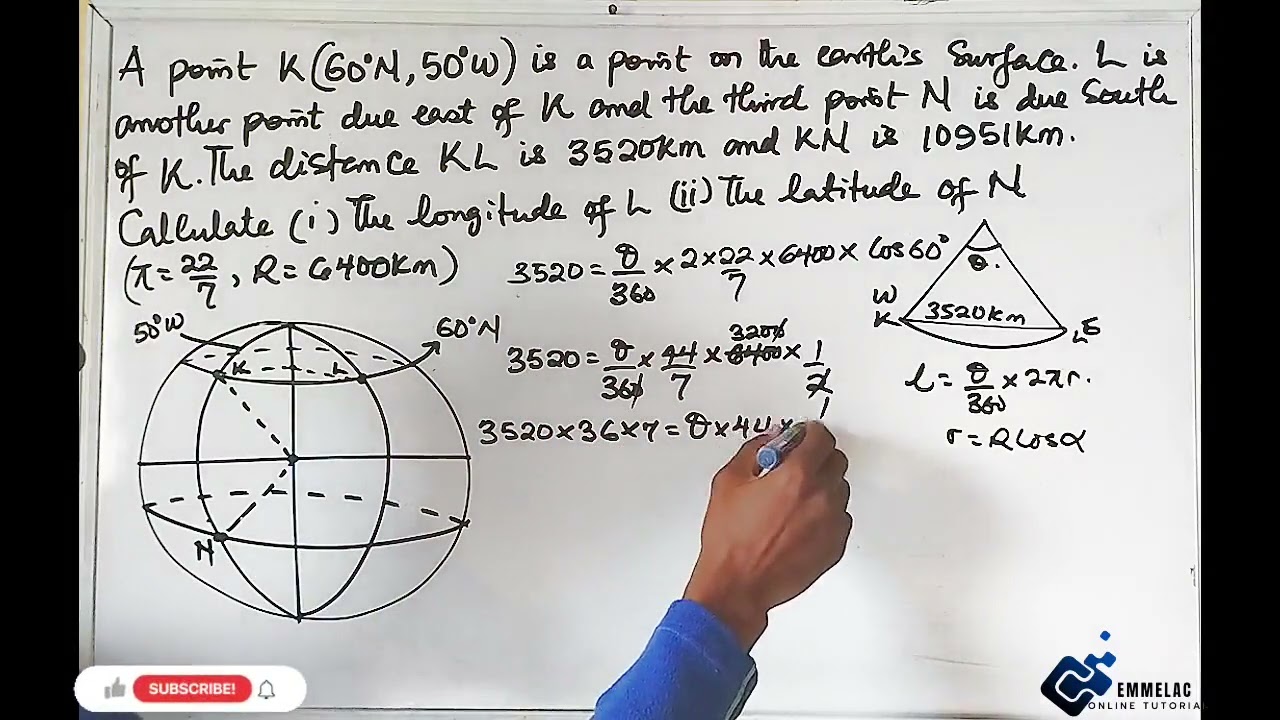 A point K(60°N, 50°W) is a point on the earth's surface. L is
another point due east of K and the third point N is due South
of K. The distance KL is 3520km and KN is 10951km.
Calculate (i) The longitude of L (ii) The latitude of N
(π = 22/7, R = 6400km)
3520 = θ/360 × 2 × 22/7 × 6400 × Cos60°
3520 = θ/360 × 44/7 × 6400 × 1/2
3200
1
3520 × 36 × 7 = θ × 44 ×
50°W
60°N
K
L
N
θ.
W
K
3520km
E
L
l = θ/360 × 2πr.
r = RCosα
SUBSCRIBE!
EMMELAC
ONLINE TUTORIA